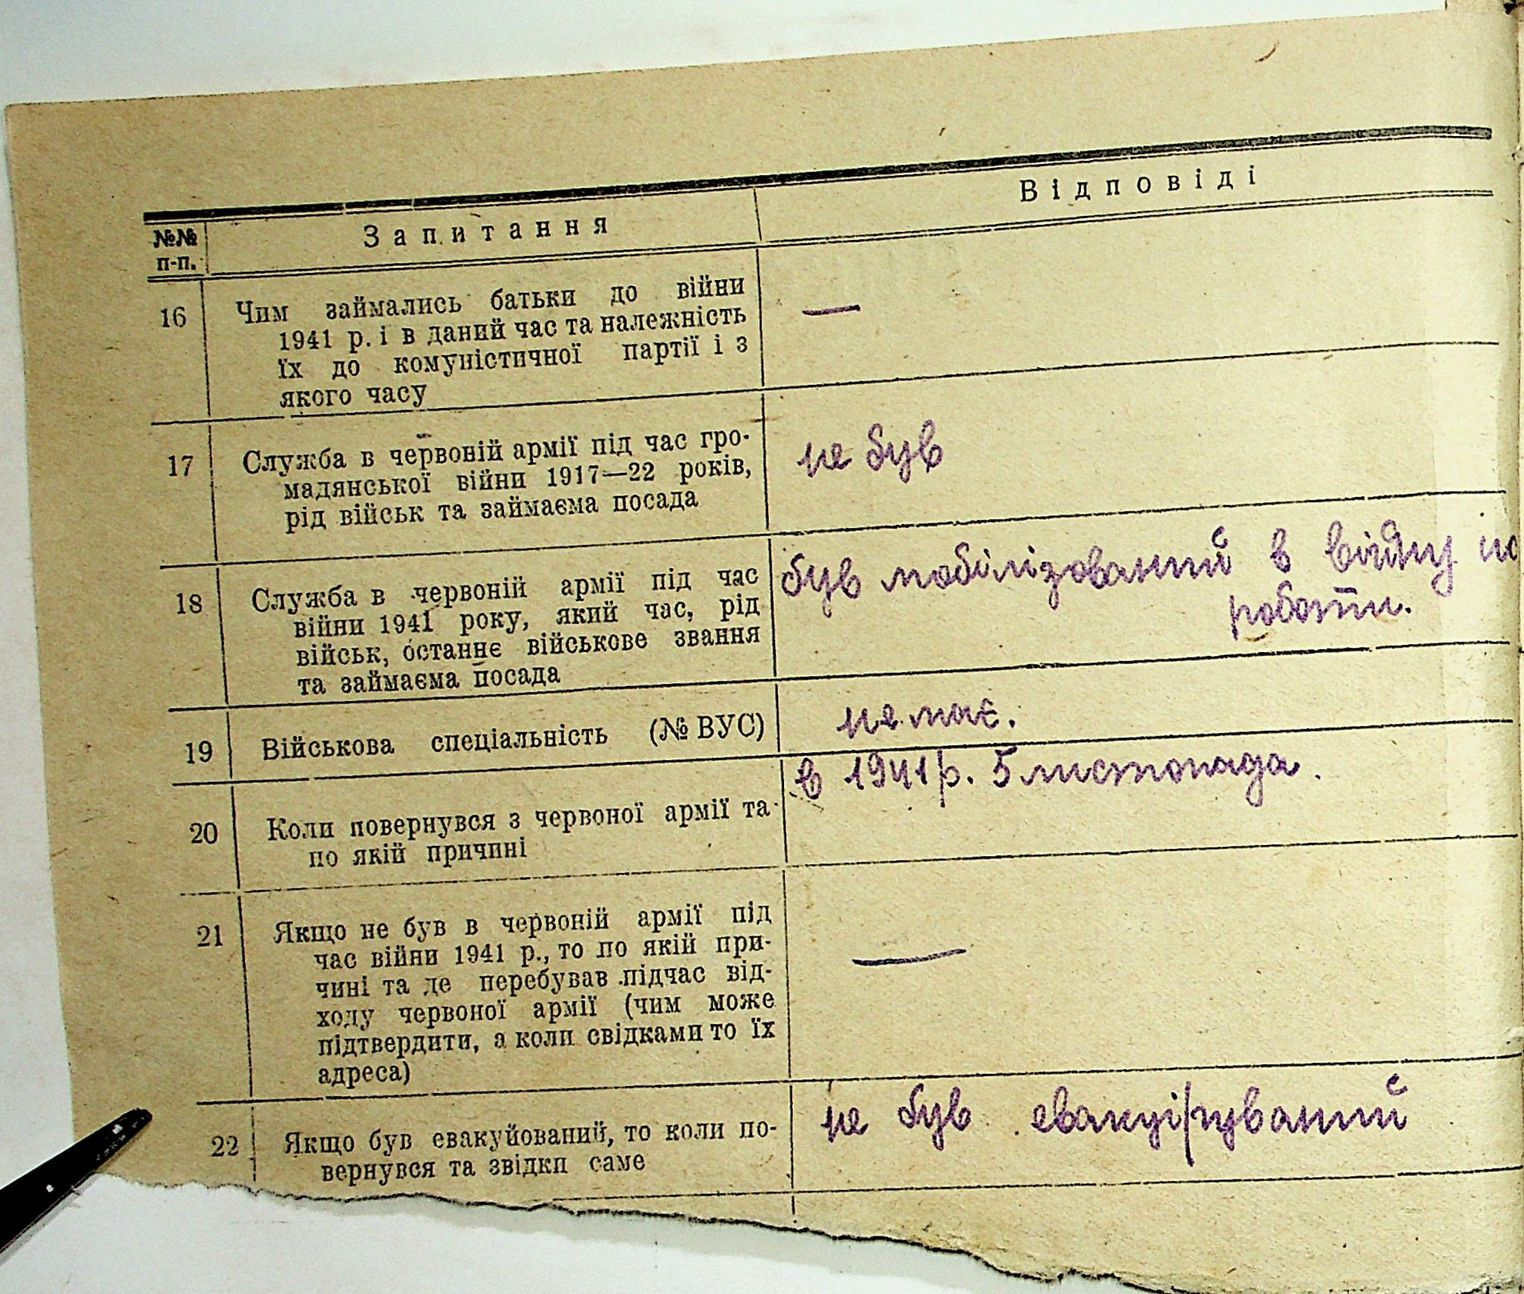 №№ п-п.
Запитання
Відповіді
16
Чим займались батьки до війни
1941 р. і в даний час та належність
їх до комуністичної партії і з
якого часу
—
17
Служба в червоній армії під час гро-
мадянської війни 1917—22 років,
рід військ та займаєма посада
не був
18
Служба в червоній армії під час
війни 1941 року, який час, рід
військ, останнє військове звання
та займаєма посада
був мобілізований в війну на
роботи.
19
Військова спеціальність (№ ВУС)
не має.
20
Коли повернувся з червоної армії та
по якій причині
в 1941 р. 5 листопада.
21
Якщо не був в червоній армії під
час війни 1941 р., то по якій при-
чині та де перебував підчас від-
ходу червоної армії (чим може
підтвердити, а коли свідками то їх
адреса)
—
22
Якщо був евакуйований, то коли по-
вернувся та звідки саме
не був